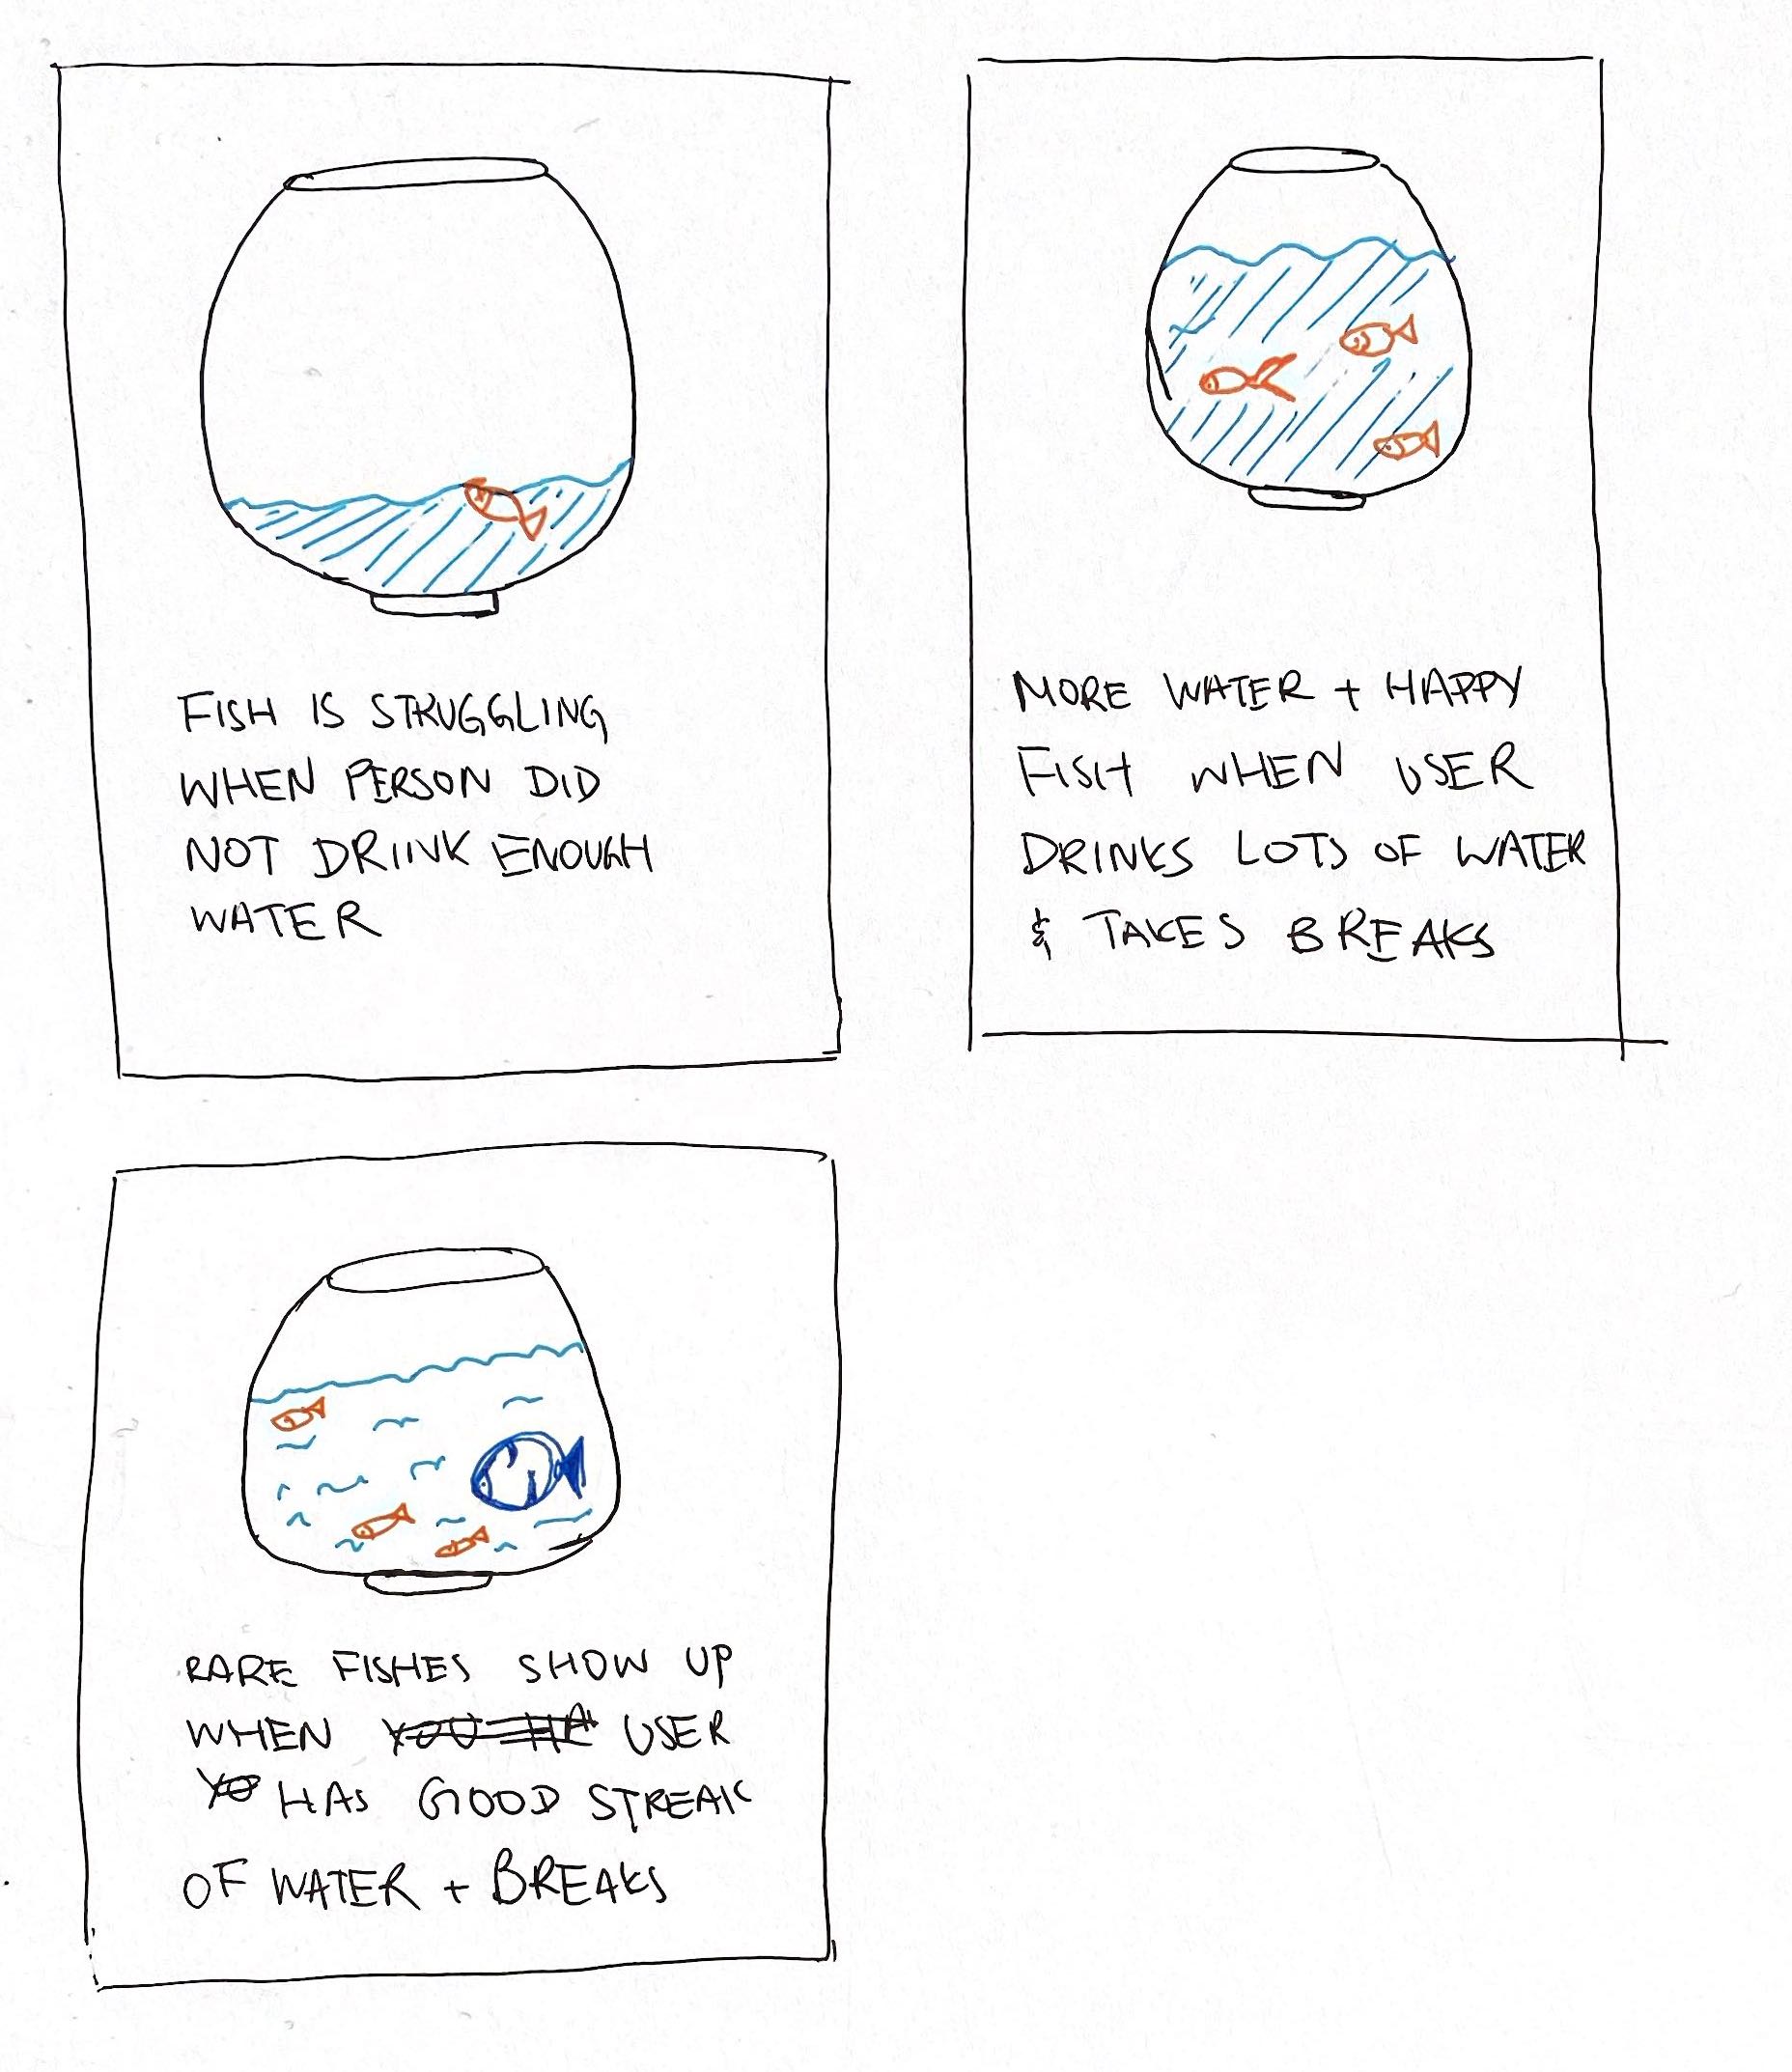 FISH IS STRUGGLING
WHEN PERSON DID
NOT DRIINK ENOUGH
WATER
MORE WATER + HAPPY
FISH WHEN USER
DRINKS LOTS OF WATER
& TAKES BREAKS
RARE FISHES SHOW UP
WHEN USER
HAS GOOD STREAK
OF WATER + BREAKS